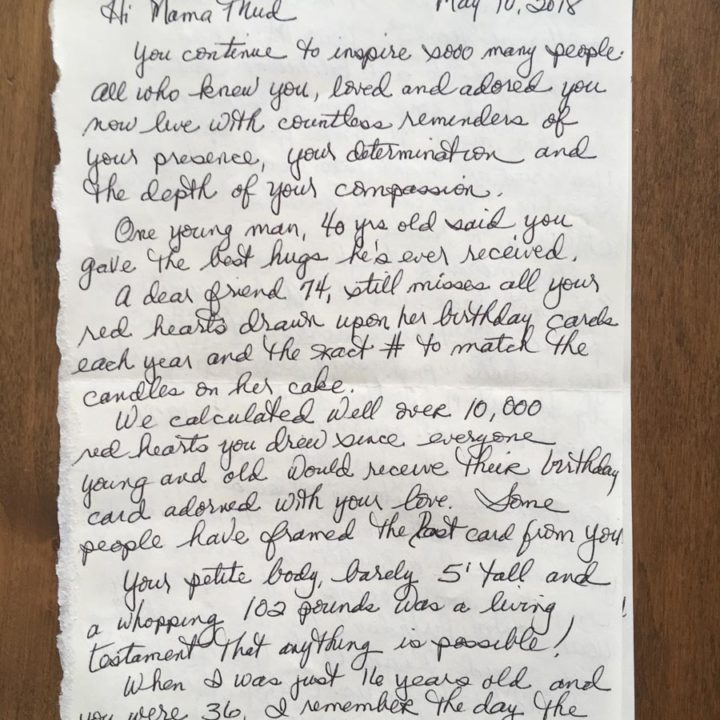 Hi Mama Mud May 10, 2018
You continue to inspire sooo many people.
all who knew you, loved and adored you
now live with countless reminders of
your presence, your determination and
the depth of your compassion.
One young man, 40 yrs old said you
gave the best hugs he's ever received.
A dear friend 74, still misses all your
red hearts drawn upon her birthday cards
each year and the exact # to match the
candles on her cake.
We calculated well over 10,000
red hearts you drew since everyone
young and old would receive their birthday
card adorned with your love. Some
people have framed the last card from you
Your petite body, barely 5' tall and
a whopping 102 pounds was a living
testament that anything is possible!
When I was just 16 years old and
you were 36, I remember the day the